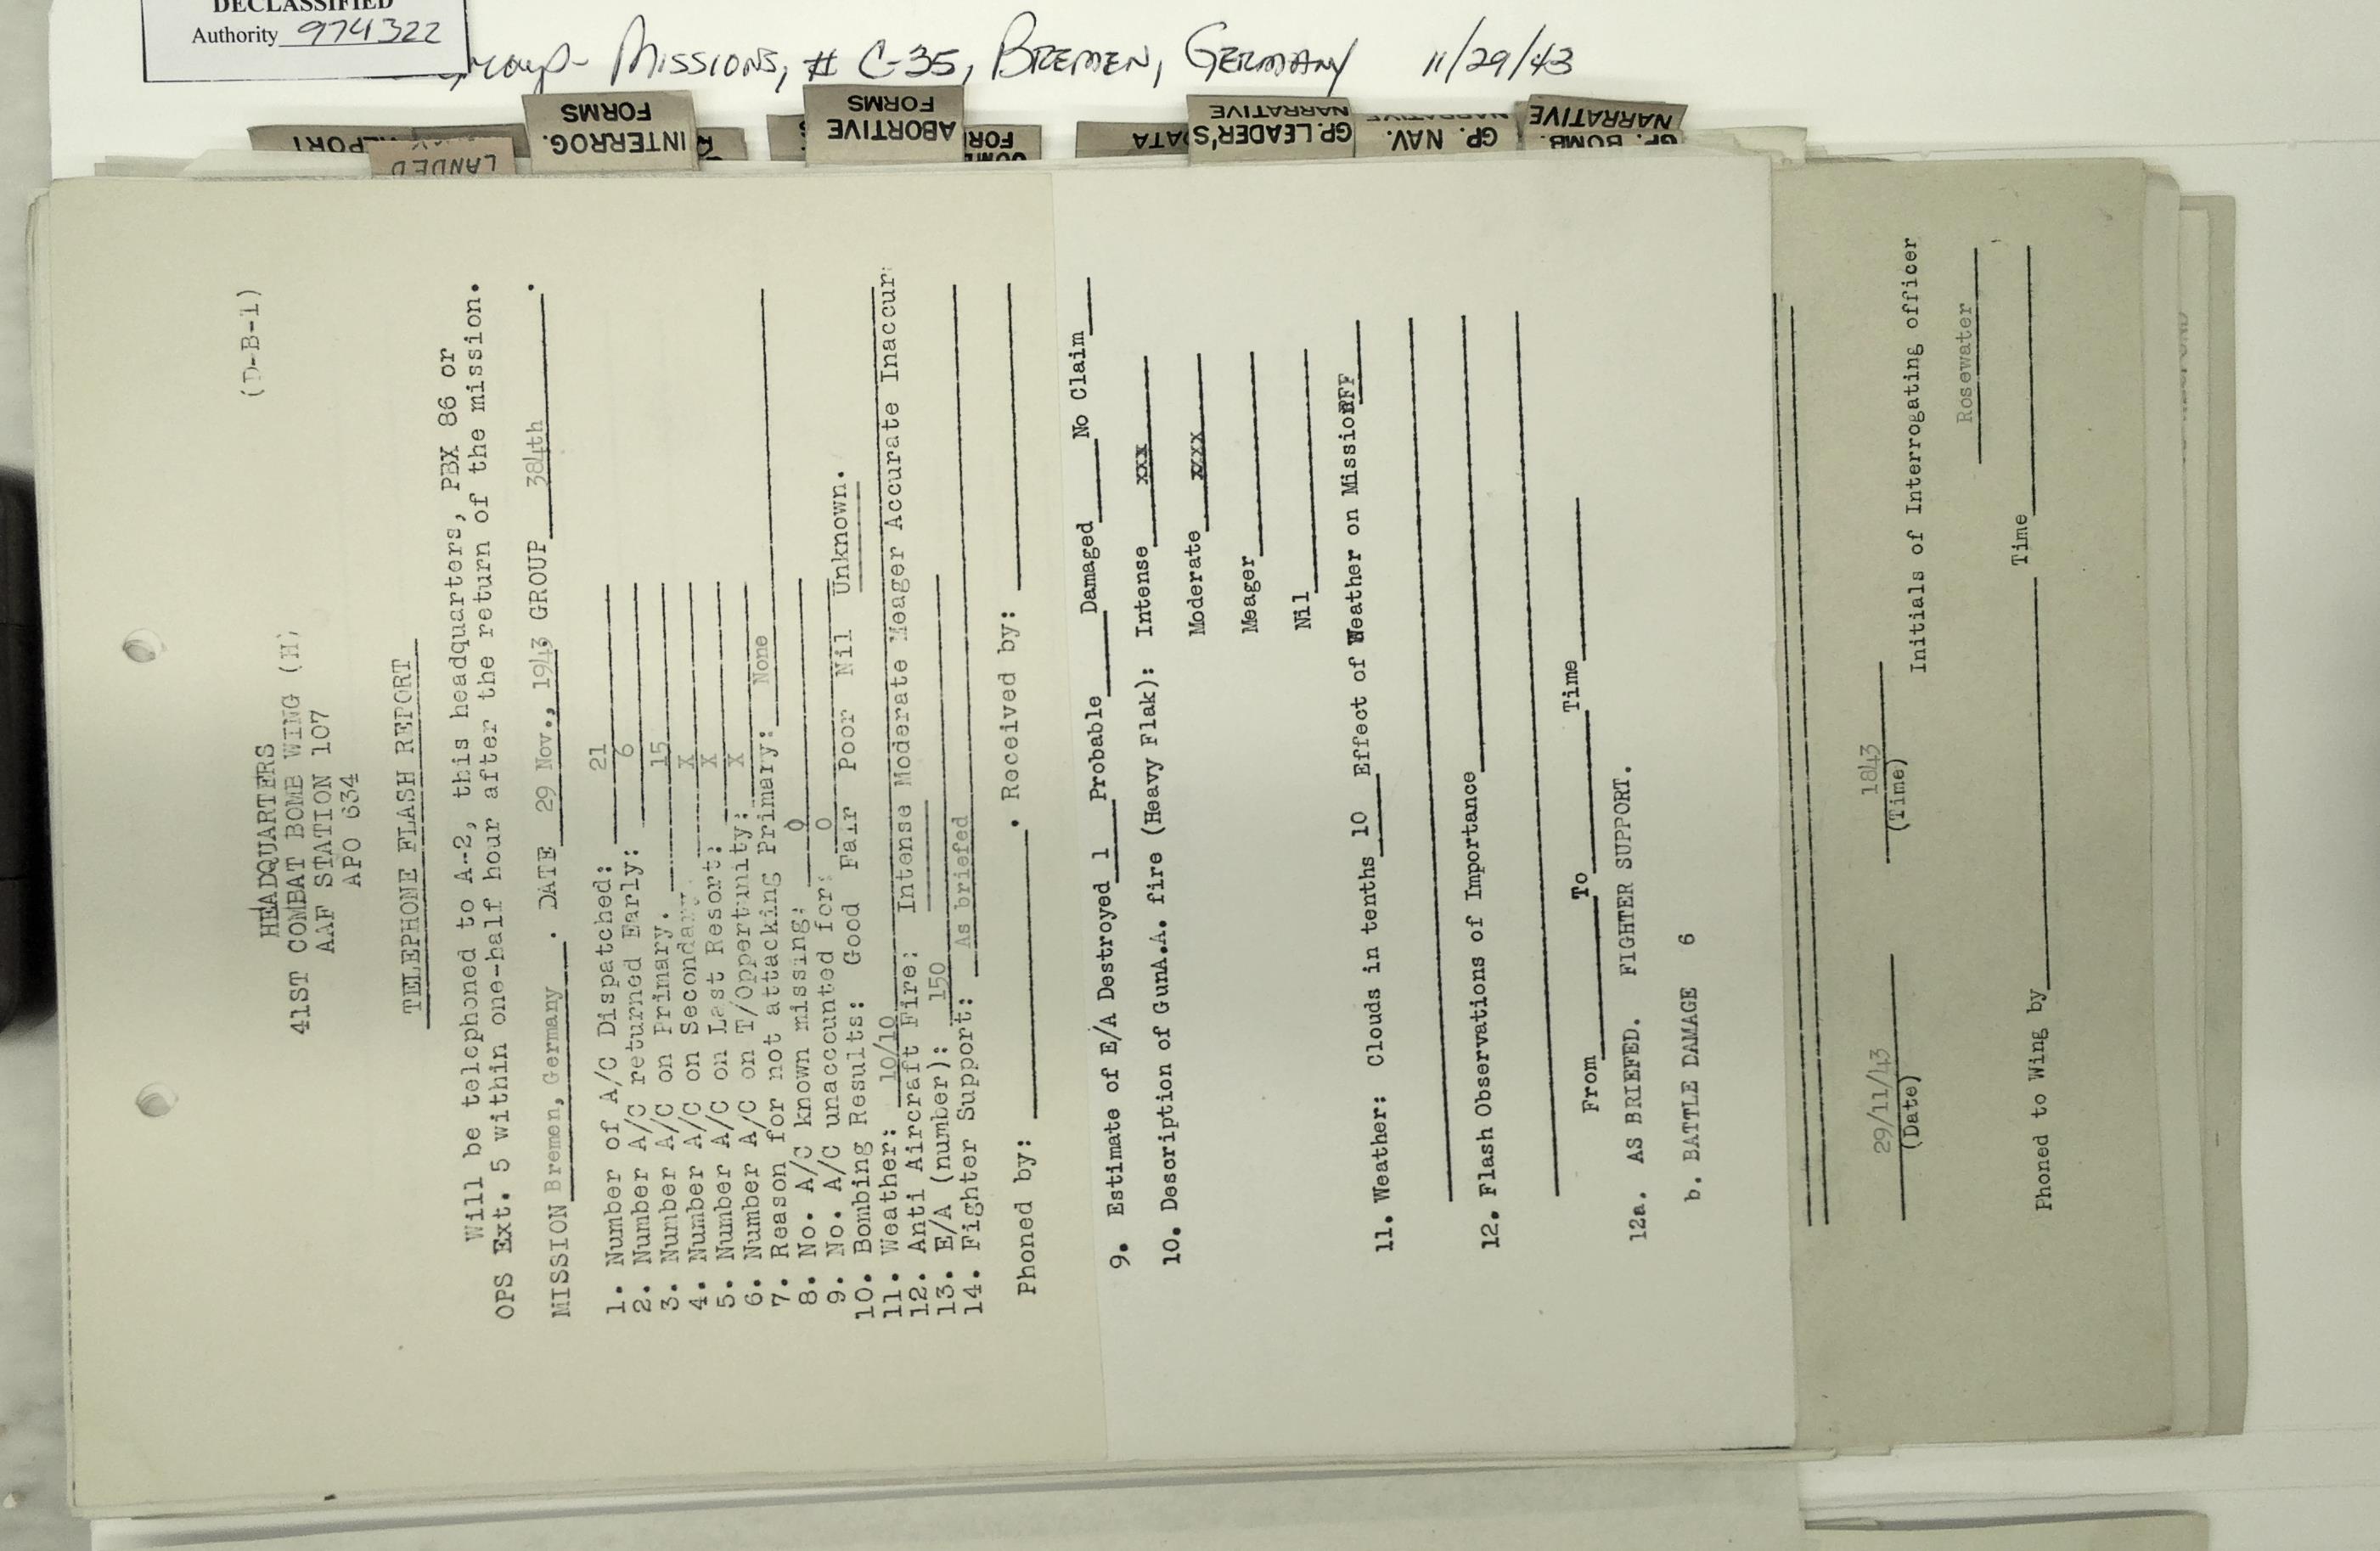 DECLASSIFIED
Authority 974322
Group- Missions, # C-35, Bremen, Germany 11/29/43
INTERROG.
FORMS
ABORTIVE
FORMS
GP. LEADER'S
NARRATIVE
GP. NAV.
NARRATIVE
GP. BOMB.
NARRATIVE
LANDED
DATA
(D-B-1)
HEADQUARTERS
41ST COMBAT BOMB WING (H)
AAF STATION 107
APO 634
TELEPHONE FLASH REPORT
Will be telephoned to A-2, this headquarters, PBX 86 or
OPS Ext. 5 within one-half hour after the return of the mission.
MISSION Bremen, Germany . DATE 29 Nov., 1943 GROUP 384th .
1. Number of A/C Dispatched: 21
2. Number A/C returned Early: 6
3. Number A/C on Primary. 15
4. Number A/C on Secondary. X
5. Number A/C on Last Resort: X
6. Number A/C on T/Oppertunity: X
7. Reason for not attacking Primary: None
8. No. A/C known missing: 0
9. No. A/C unaccounted for: 0
10. Bombing Results: Good Fair Poor Nil Unknown.
11. Weather: 10/10
12. Anti Aircraft Fire: Intense Moderate Meager Accurate Inaccur
13. E/A (number): 150
14. Fighter Support: As briefed
Phoned by: . Received by:
9. Estimate of E/A Destroyed 1 Probable Damaged No Claim
10. Description of GunA.A. fire (Heavy Flak): Intense xxx
Moderate xxxx
Meager
Nil
11. Weather: Clouds in tenths 10 Effect of Weather on Mission PFF
12. Flash Observations of Importance
From To Time
12a. AS BRIEFED. FIGHTER SUPPORT.
b. BATTLE DAMAGE 6
29/11/43 1843
(Date) (Time) Initials of Interrogating officer
Rosewater
Phoned to Wing by Time